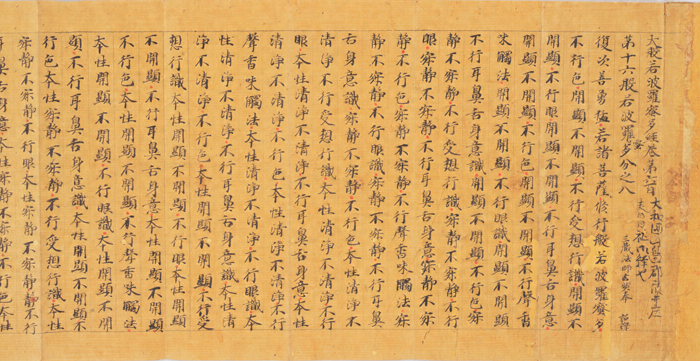 大般若波羅蜜多經卷第六百 大和國
第十六般若波羅蜜多分之八
復次善勇猛若諸菩薩修行般若波羅蜜多
不行色開顯不開顯不行受想行識開顯不
開顯不行眼開顯不開顯不行耳鼻舌身意
開顯不開顯不行色開顯不開顯不行聲香
味觸法開顯不開顯不行眼識開顯不開顯
不行耳鼻舌身意識開顯不開顯不行色寂
靜不寂靜不行受想行識寂靜不寂靜不行
眼寂靜不寂靜不行耳鼻舌身意寂靜不寂
靜不行色寂靜不寂靜不行聲香味觸法寂
靜不寂靜不行眼識寂靜不寂靜不行耳鼻
舌身意識寂靜不寂靜不行色本性清淨不
清淨不行受想行識本性清淨不清淨不行
眼本性清淨不清淨不行耳鼻舌身意本性
清淨不清淨不行色本性清淨不清淨不行
聲香味觸法本性清淨不清淨不行眼識本
性清淨不清淨不行耳鼻舌身意識本性清
淨不清淨不行色本性開顯不開顯不行受
想行識本性開顯不開顯不行眼本性開顯
不開顯不行耳鼻舌身意本性開顯不開顯
不行色本性開顯不開顯不行聲香味觸法
本性開顯不開顯不行眼識本性開顯不開
顯不行耳鼻舌身意識本性開顯不開顯不
行色本性寂靜不寂靜不行受想行識本性
寂靜不寂靜不行眼本性寂靜不寂靜不行
耳鼻舌身意本性寂靜不寂靜不行